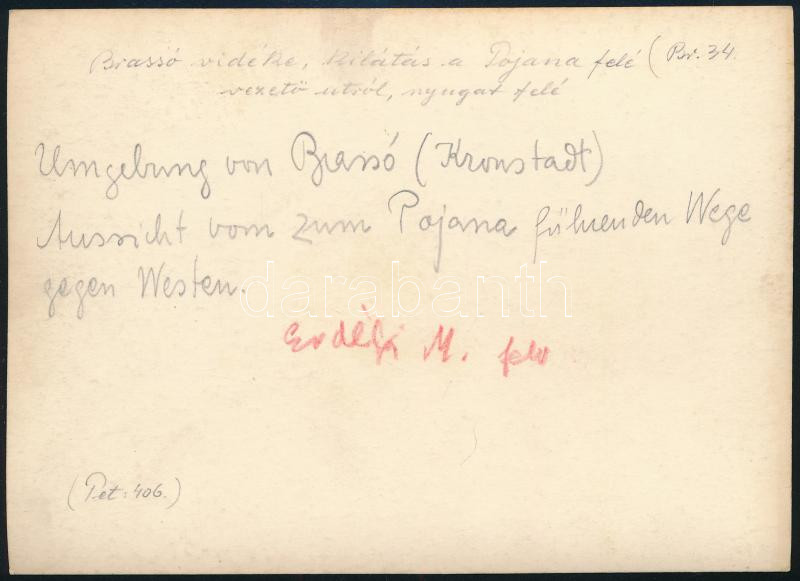 Brassó vidéke, kilátás a Pojana felé (Br. 34.
vezető utról, nyugat felé
Umgebung von Brassó (Kronstadt)
Aussicht vom zum Pojana führenden Wege
gegen Westen.
darabanth
Erdélyi M. felv
(Pet: 406.)